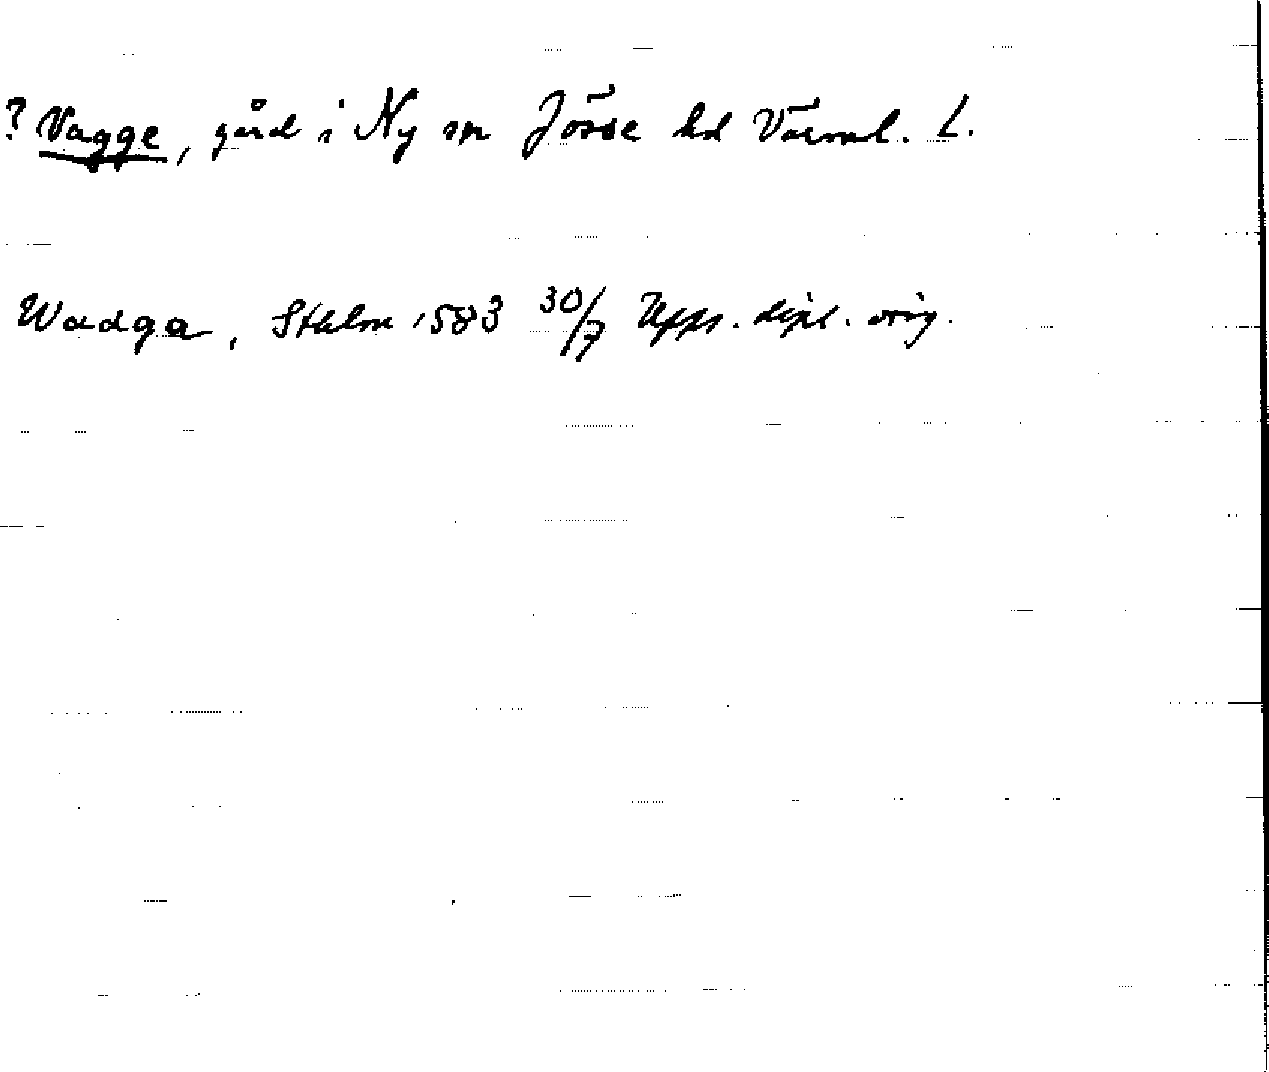 ? Vagge, gård i Ny sn Jösse hd Värml. L.
Wadga, Sthlm 1583 30/7 Upps. dipl. orig.